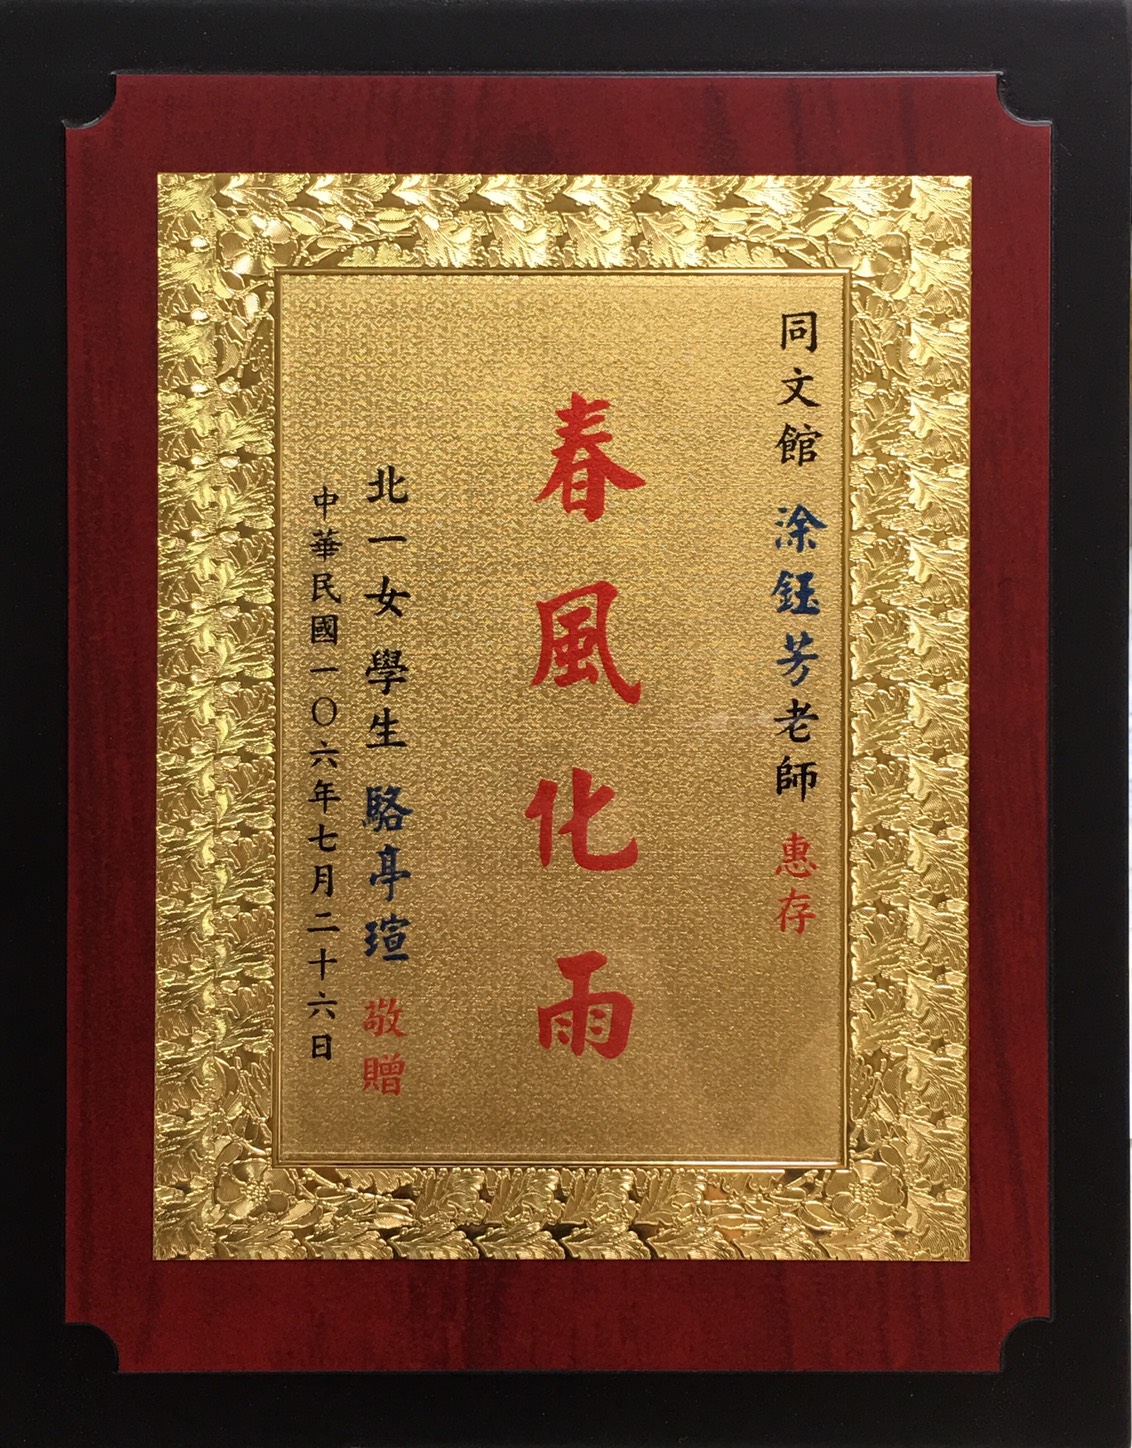 同文館 涂鈺芳老師 惠存
春風化雨
北一女 學生 駱亭瑄 敬贈
中華民國一〇六年七月二十六日